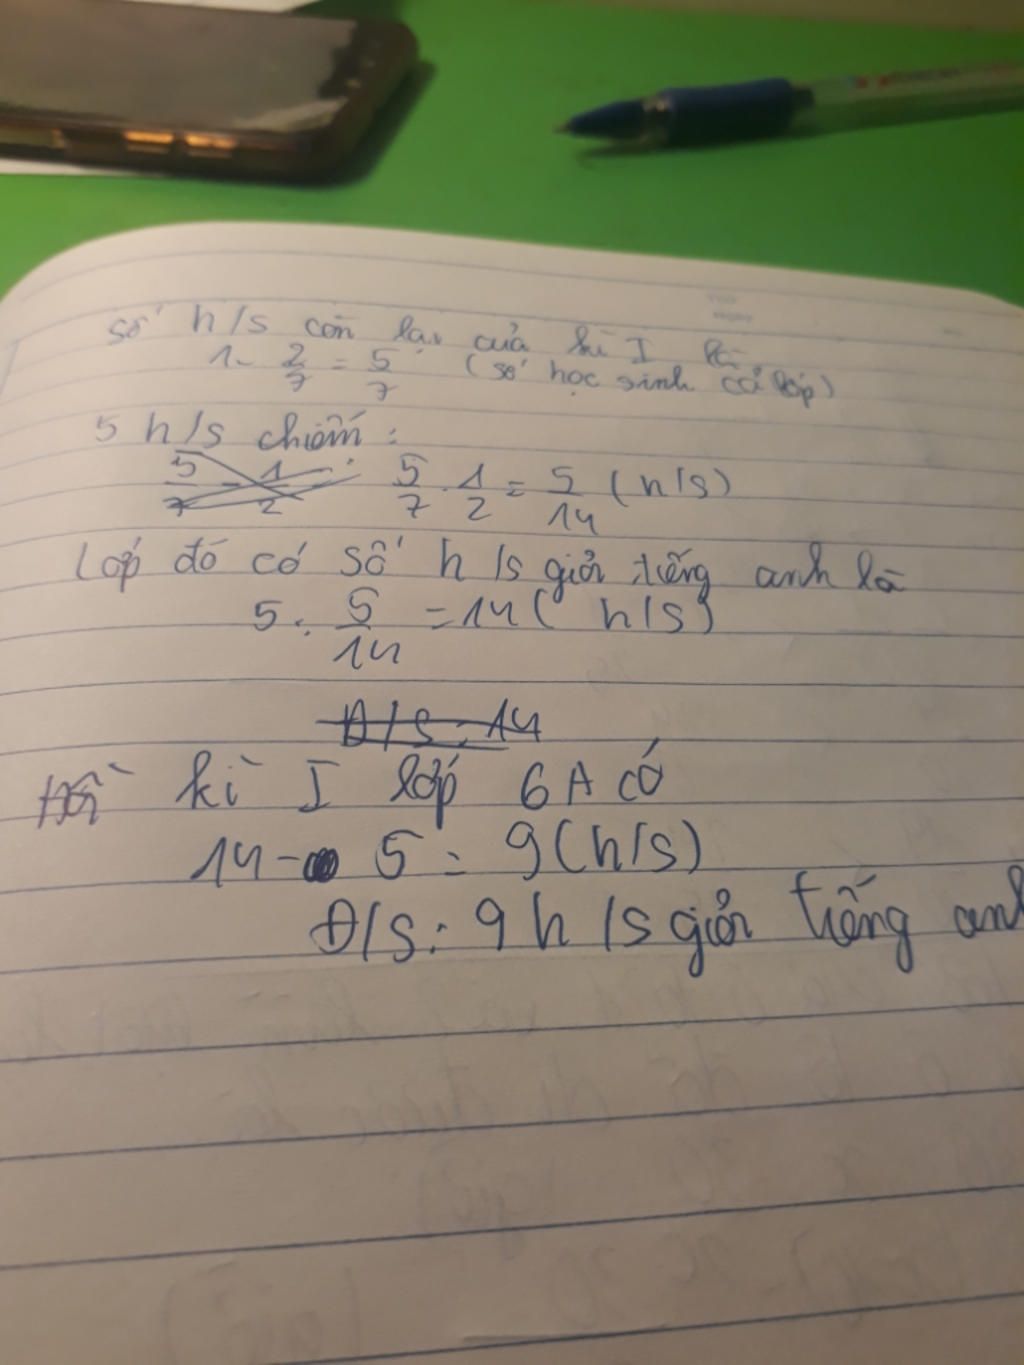 số h/s còn lại của kì I là
1 - 2/7 = 5/7 (số học sinh cả lớp)
5 h/s chiếm:
5/7 . 1/2 = 5/14 (h/s)
Lớp đó có số h/s giỏi tiếng anh là
5 : 5/14 = 14 ( h/s)
Đ/S: 14
kì I lớp 6A có
14 - 5 = 9 (h/s)
Đ/S: 9 h/s giỏi tiếng anh